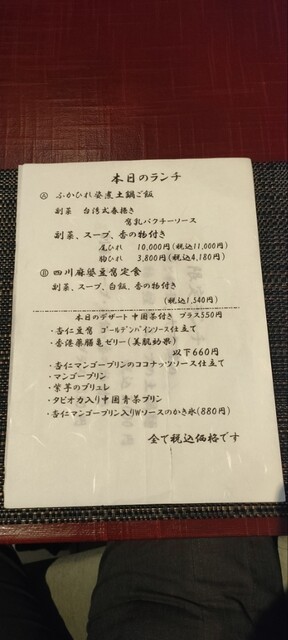 本日のランチ
Ⓐ ふかひれ姿煮土鍋ご飯
副菜 台湾式春捲き
腐乳パクチーソース
副菜、スープ、香の物付き
尾びれ 10,000円(税込11,000円)
胸びれ 3,800円(税込4,180円)
Ⓑ 四川麻婆豆腐定食
副菜、スープ、白飯、香の物付き
(税込1,540円)
本日のデザート 中国茶付き プラス550円
・杏仁豆腐 ゴールデンパインソース仕立て
・香港薬膳亀ゼリー(美肌効果)
以下660円
・杏仁マンゴープリンのココナッツソース仕立て
・マンゴープリン
・紫芋のブリュレ
・タピオカ入り中国青茶プリン
・杏仁マンゴープリン入りWソースのかき氷(880円)
全て税込価格です